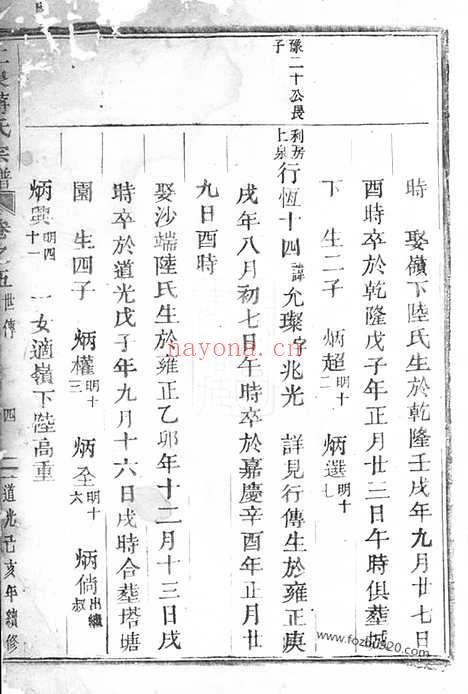 時　娶嶺下陸氏生於乾隆壬戌年九月廿七日
酉時卒於乾隆戊子年正月廿三日午時俱塟城
下　生二子　炳超明十二　炳選明十七
豫二十公長子
利房上泉行恆十四諱允璨字兆光　詳見行傳生於雍正庚
戌年八月初七日午時卒於嘉慶辛酉年正月廿
九日酉時
娶沙端陸氏生於雍正乙卯年十二月十三日戌
時卒於道光戊子年九月十六日戌時合塟塔塘
園　生四子　炳權明十三　炳全明十六　炳倘出繼叔
炳興明四十一　一女適嶺下陸高重
氏宗譜　卷之五　世傳　四　道光己亥年續修
nayona.cn
www.fozhu920.com